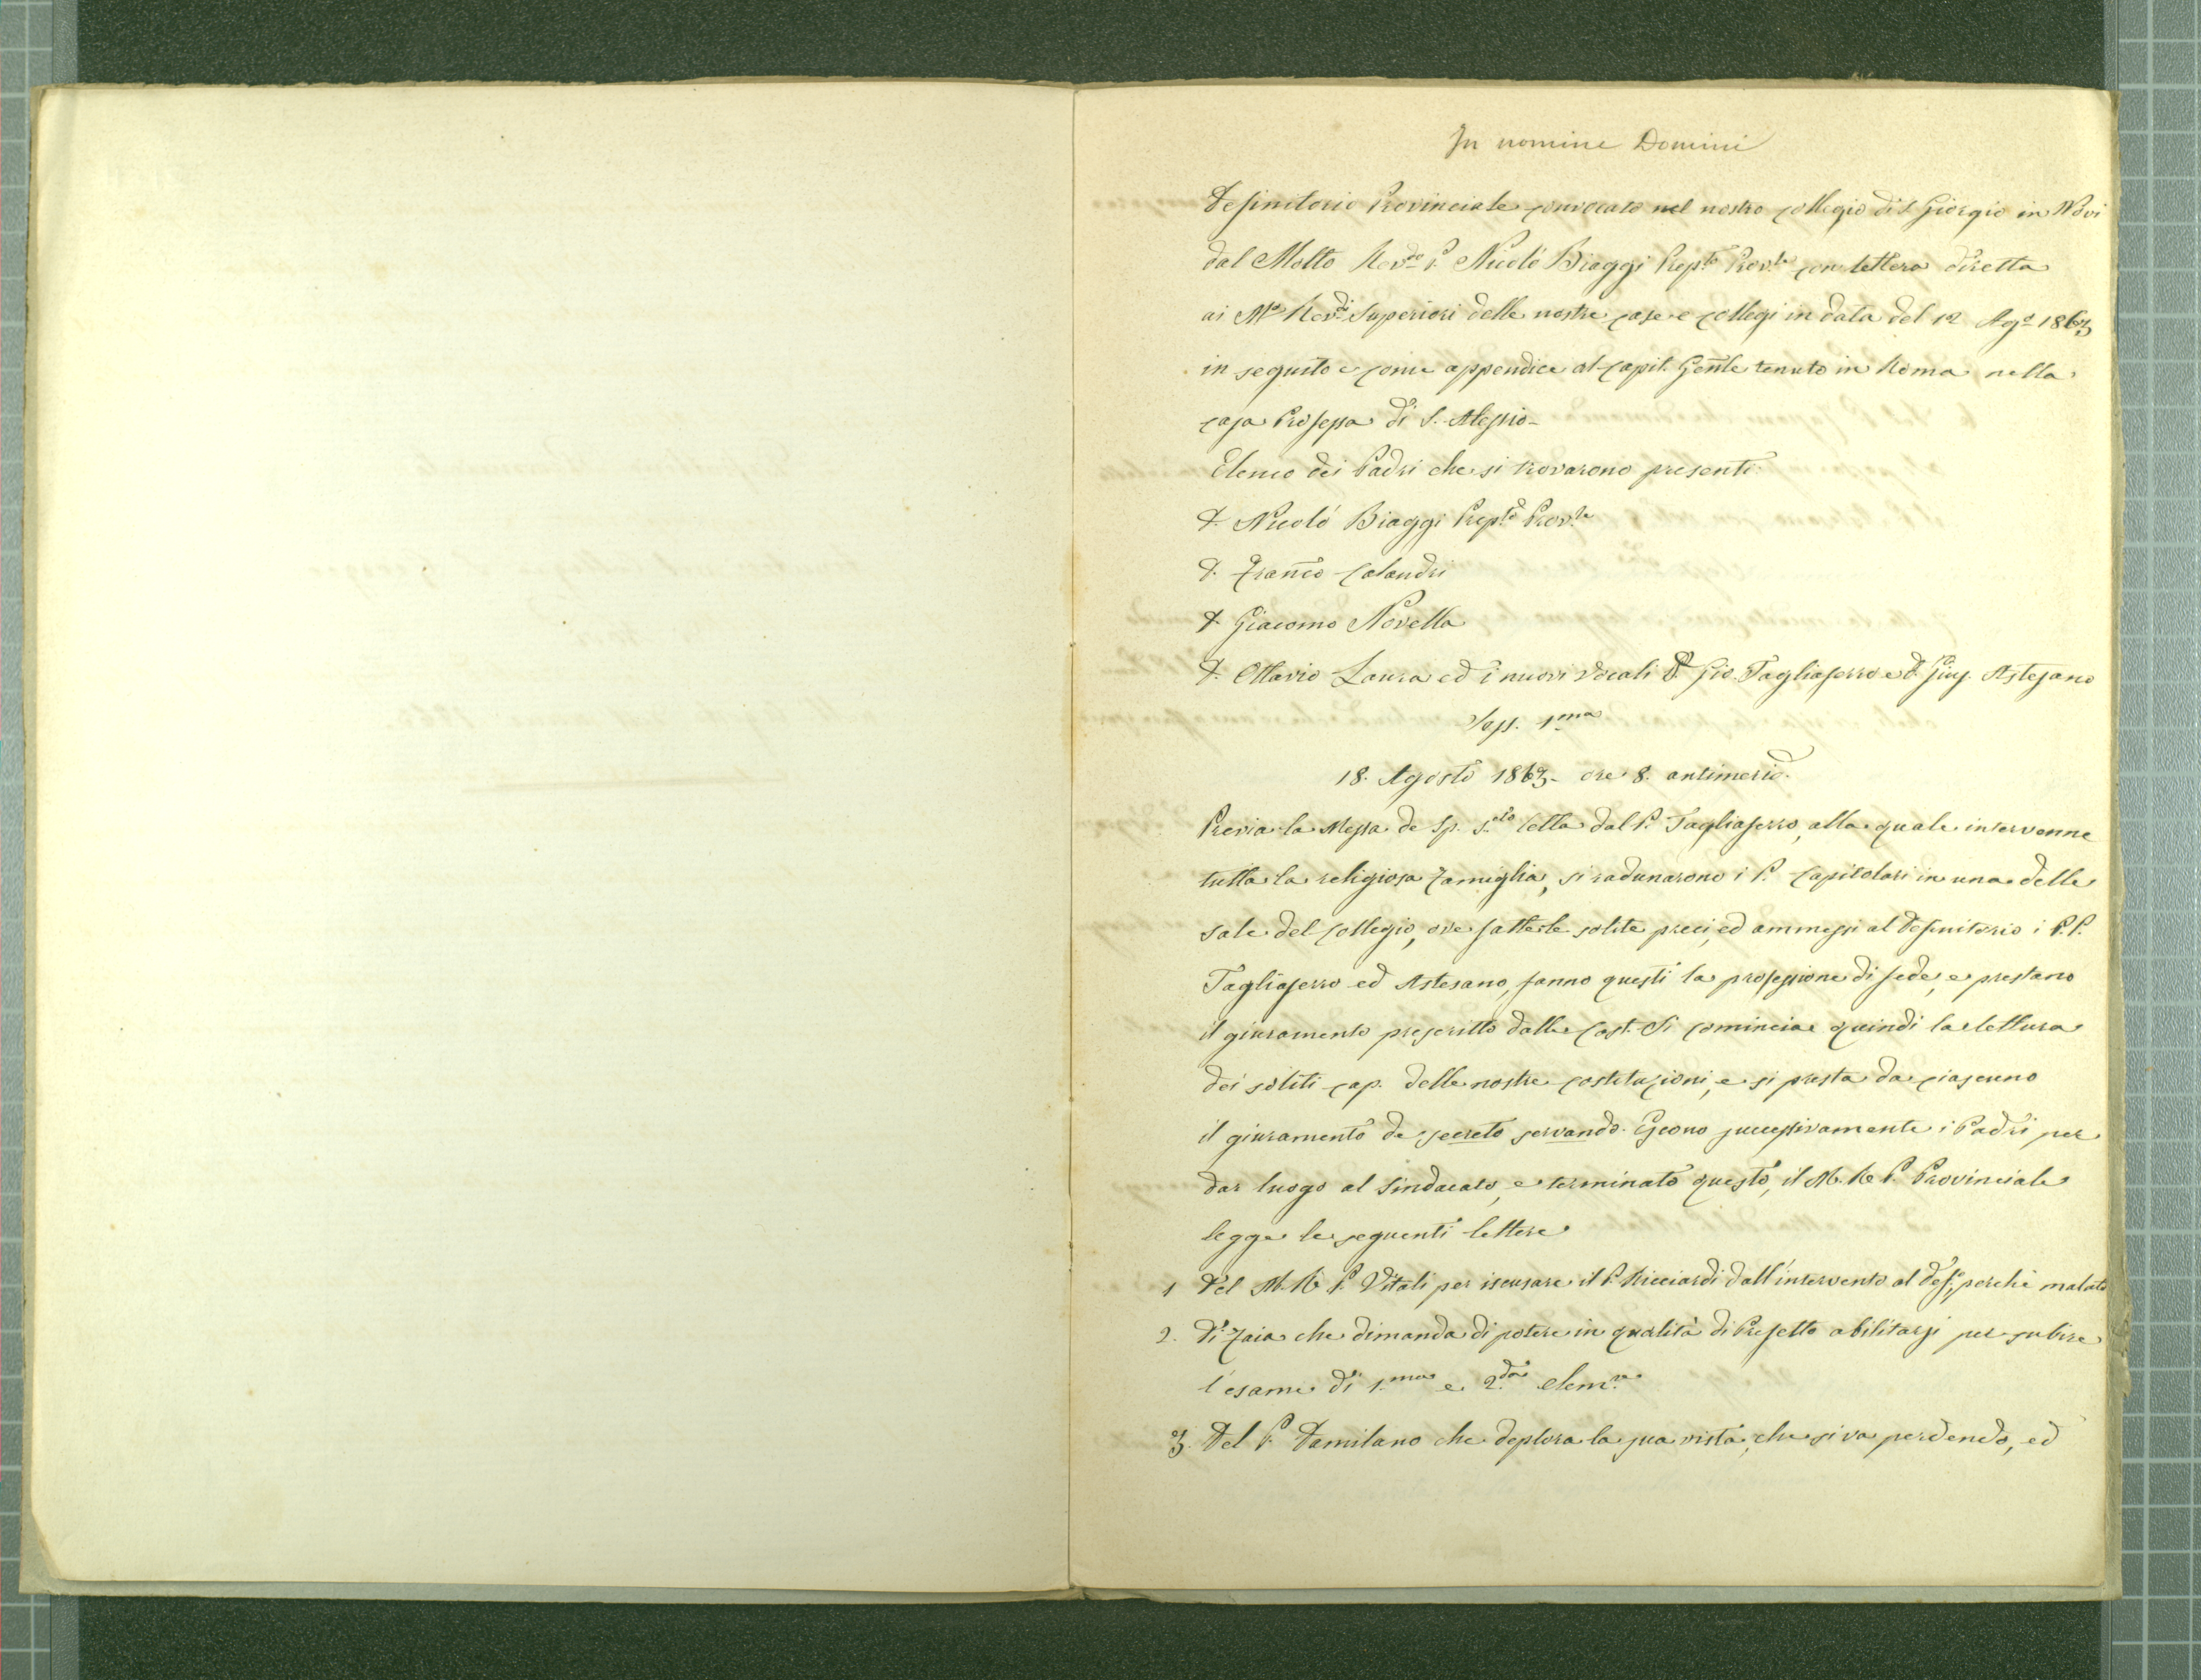 In nomine Domini
Definitorio Provinciale convocato nel nostro collegio di S. Giorgio in Novi
dal Molto Rev.do P. Nicolò Biaggi Prep.to Prov.le con lettera diretta
ai M.o Rev.di Superiori delle nostre case e collegi in data del 12 Ag.o 1863
in seguito e come appendice al capit. Gen̄le tenuto in Roma nella
casa Professa di S. Alessio-
Elenco dei Padri che si trovarono presenti
D. Nicolò Biaggi Prep.to Prov.le
D. Fran̄co Calandri
D. Giacomo Novella
D. Ottavio Laura ed i nuovi Vocali D. Gio. Tagliaferro e D. Giuj. Astesano
Sess. 1.ma
18. Agosto 1863- ore 8. antimerid.
Previa la Messa de Sp. S.to letta dal P. Tagliaferro, alla quale intervenne
tutta la religiosa famiglia, si radunarono i P. Capitolari in una delle
sale del collegio, ove fatte le solite preci, ed ammessi al Definitorio i P.P.
Tagliaferro ed Astesano, fanno questi la professione di fede, e prestano
il giuramento prescritto dalle Cost. Si comincia quindi la lettura
dei soliti cap. delle nostre costituzioni, e si presta da ciascuno
il giuramento de secreto servando. Escono successivamente i Padri per
dar luogo al Sindacato, e terminato questo, il M. R. P. Provinciale
legge le seguenti lettere
1 Del M. R. P. Vitali per iscusare il P. Ricciardi dall'intervento al Def.o, perchè malato
2. Di Zaia che dimanda di potere in qualità di Prefetto abilitarsi per subire
l'esame di 1.ma e 2.da elem.re
3. Del P. Damilano che deplora la sua vista, che si va perdendo, ed